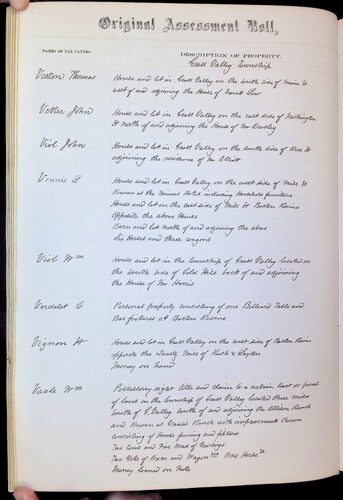 Original Assessment Roll,
NAMES OF TAX PAYERS
DESCRIPTION OF PROPERTY.
Grass Valley Township
Thomas House and lot in Grass Valley on the South side of Main St
west of and adjoining the House of
Vetter John House and lot in Grass Valley on the east side of Washington
St north of and adjoining the House of Mr
Viol John House and lot in Grass Valley on the south side of St
adjoining the residence of Mr Elliott
Vinnis L House and lot in Grass Valley on the west side of Mill St
Known as the Hotel including Household furniture
House and lot on the east side of Mill St Boston Ravine
Opposite the above House
Barn and lot north of and adjoining the above
Six Horses and three wagons
Viol Wm House and lot in the township of Grass Valley located on
the south side of Hill back of and adjoining
the House of Mr Harris
C Personal property consisting of one Billiard Table and
Bar fixtures at Boston Ravine
Vignon House and lot in Grass Valley on the west side of Boston Ravine
opposite the Quartz Mill of &
Money on hand
Wm Possessory right title and claim to a certain tract or parcel
of land in the township of Grass Valley located three miles
south of G. Valley south of and adjoining the Allison Ranch
and Known as Ranch with improvements thereon
consisting of House fencing and
Two Cows and Five Head of Yearlings
Two Yoke of Oxen and Wagon One Horse
Money loaned on Note